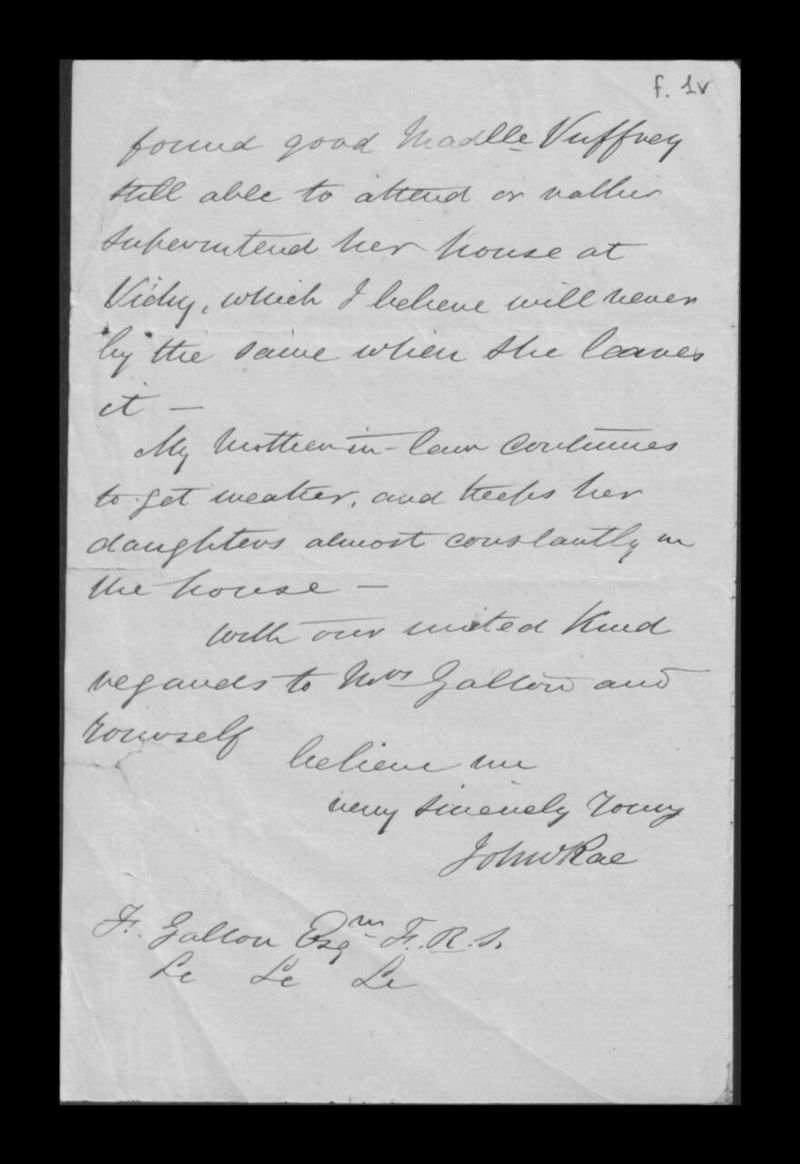 f. 1v
found good Madlle Vuffrey
still able to attend or rather
superintend her house at
Vichy, which I believe will never
by the same when she leaves
it —
My Mother-in-law continues
to get weaker, and keeps her
daughters almost constantly in
the house —
With our united Kind
regards to Mrs Galton and
Yourself
believe me
very sincerely Yours
John Rae
F. Galton Esqre F.R.S.
&c &c &c